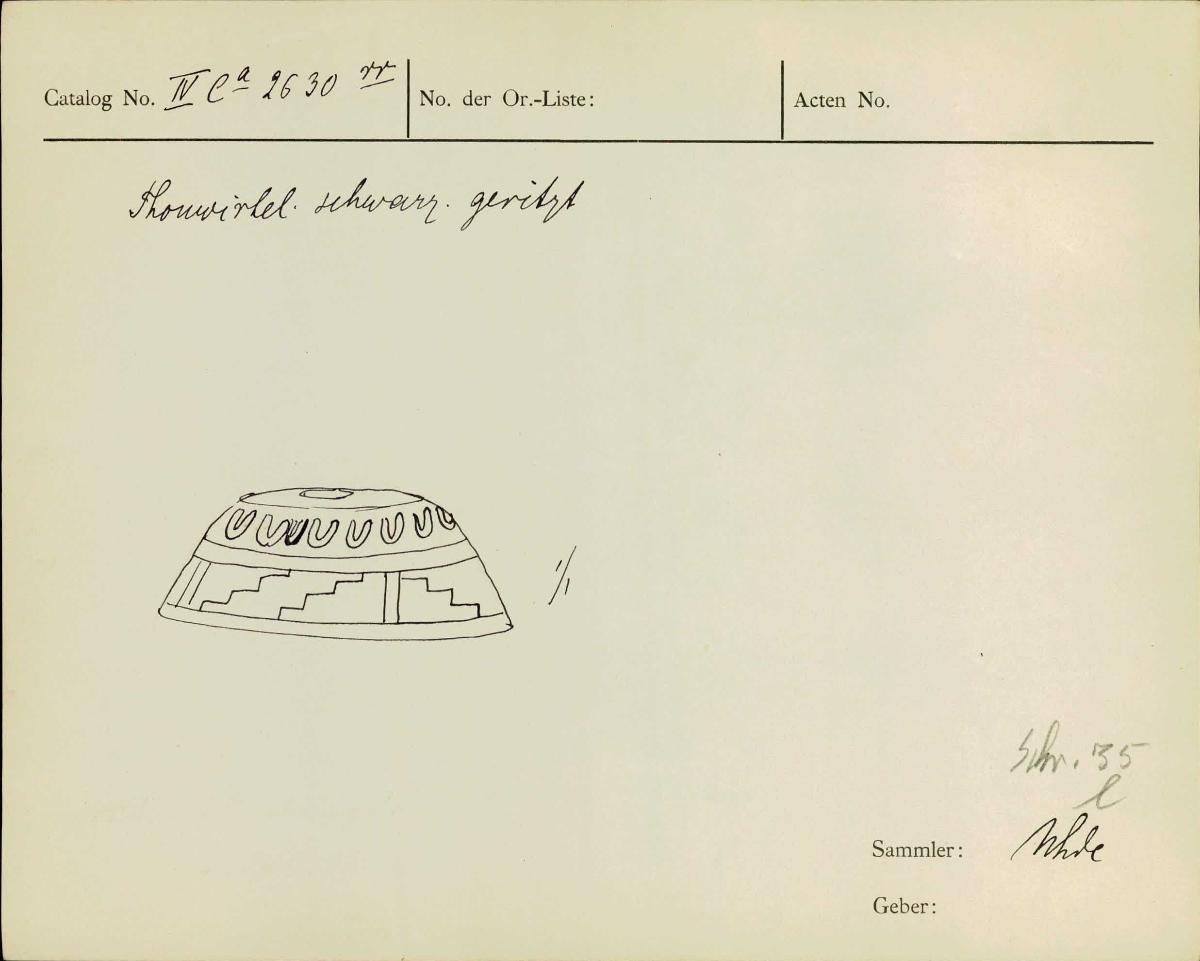 Catalog No. IV Ca 2630 rr No. der Or.-Liste: Acten No.
Thonwirtel. schwarz. geritzt
1/1
Schr. 35
l
Sammler: Uhde
Geber: